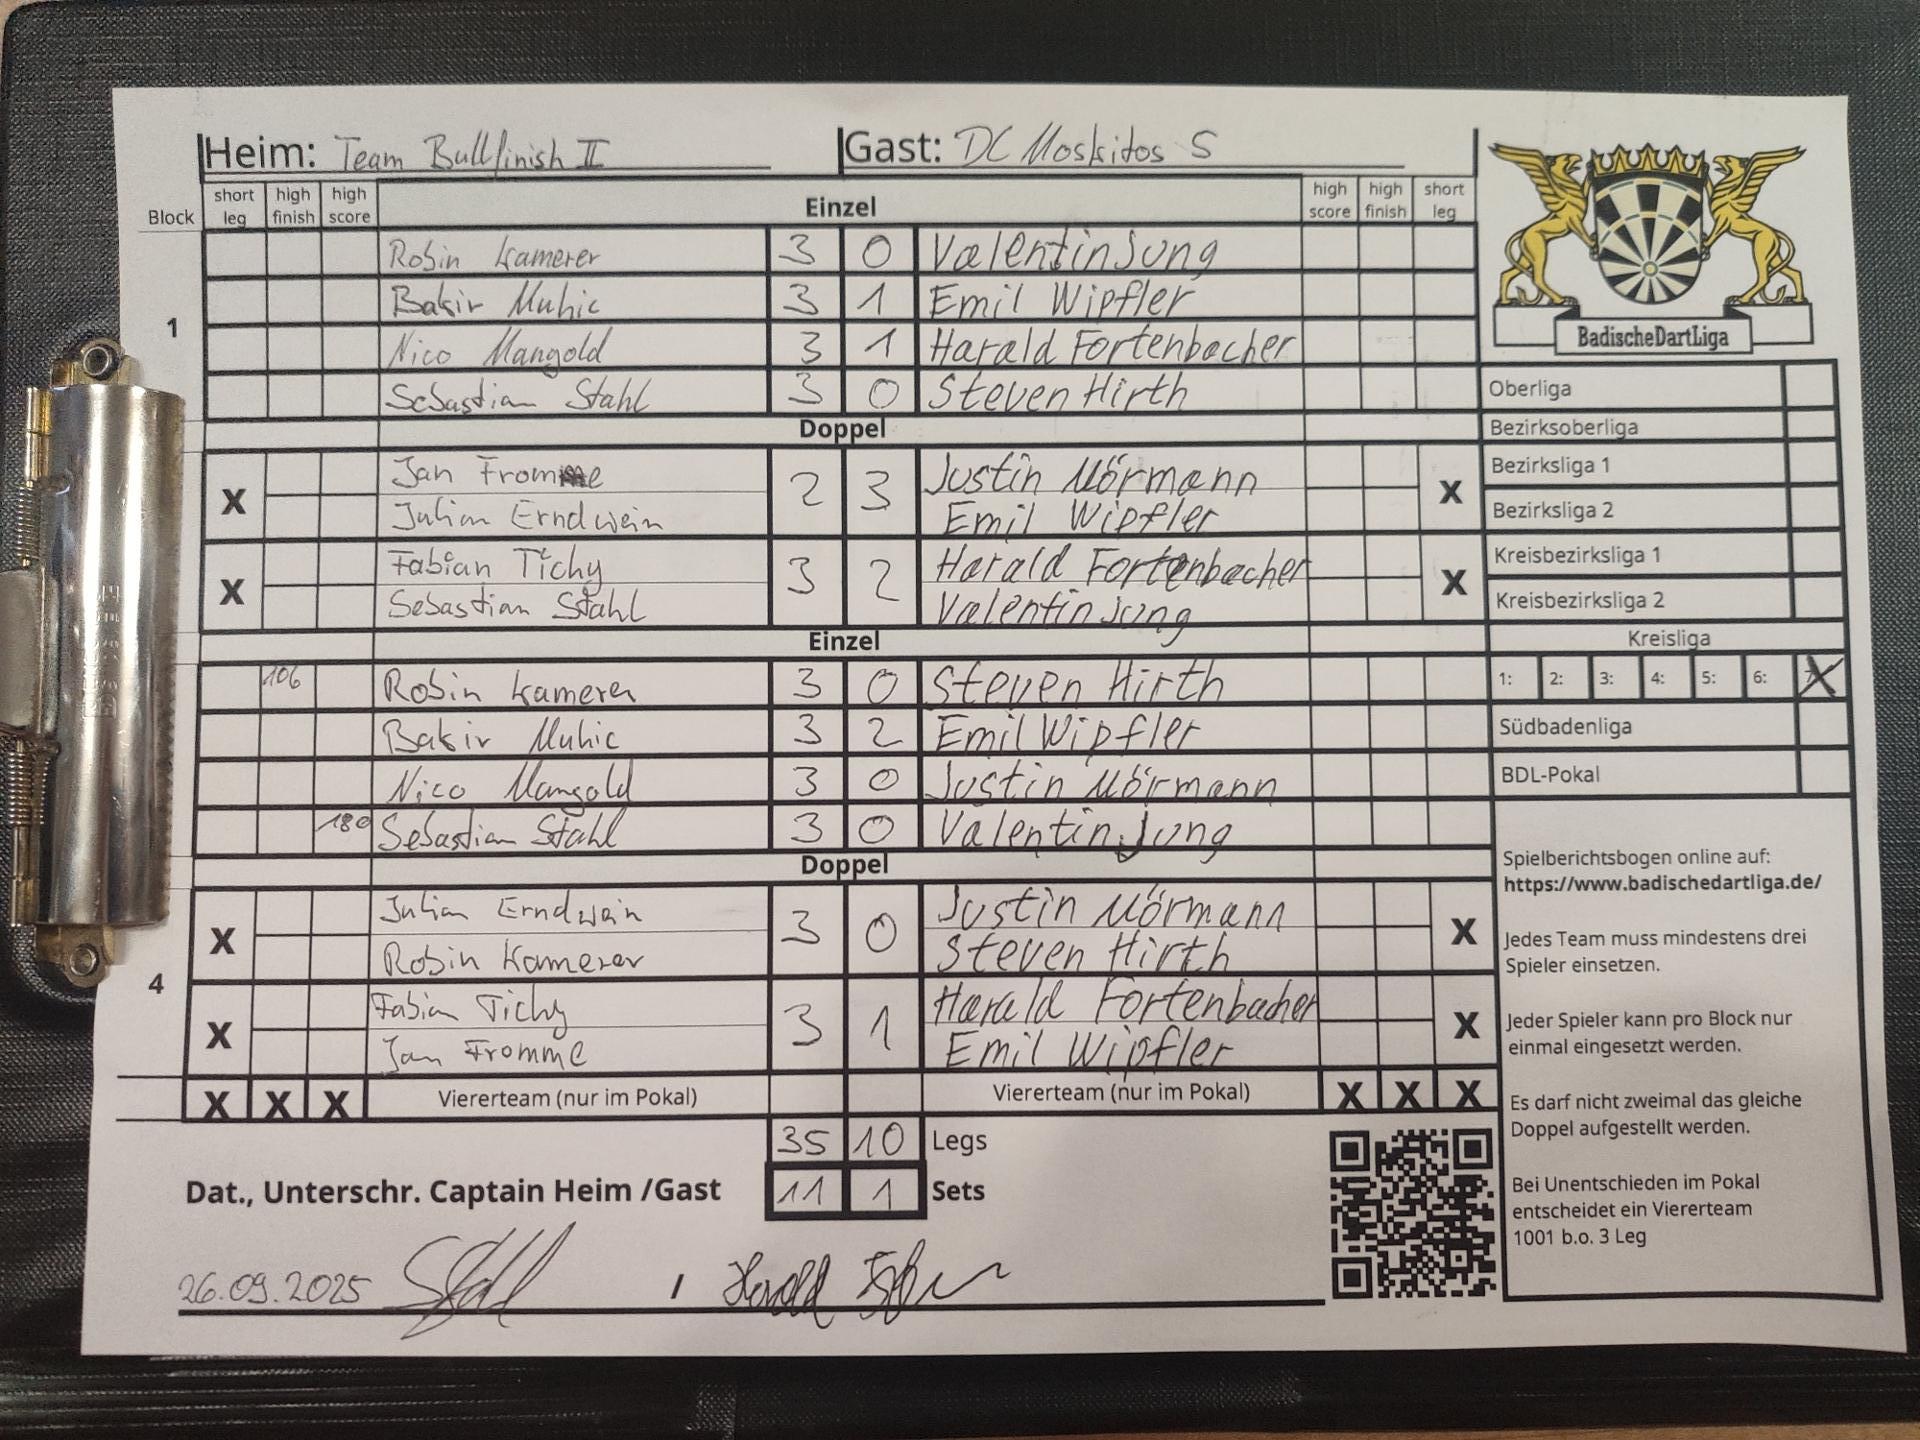 Heim: Team Bullfinish II Gast: DC Moskitos 5
Block short leg high finish high score Einzel high score high finish short leg
Robin Kamerer 3 0 Valentin Jung
Bakir Muhic 3 1 Emil Wipfler
1
Nico Mangold 3 1 Harald Fortenbacher
Sebastian Stahl 3 0 Steven Hirth
Doppel
X Jan Fromme 2 3 Justin Mörmann X
Julian Erndwein Emil Wipfler
X Fabian Tichy 3 2 Harald Fortenbacher X
Sebastian Stahl Valentin Jung
Einzel
106 Robin Kamerer 3 0 Steven Hirth
Bakir Muhic 3 2 Emil Wipfler
Nico Mangold 3 0 Justin Mörmann
180 Sebastian Stahl 3 0 Valentin Jung
Doppel
X Julian Erndwein 3 0 Justin Mörmann X
Robin Kamerer Steven Hirth
4
X Fabian Tichy 3 1 Harald Fortenbacher X
Jan Fromme Emil Wipfler
X X X Viererteam (nur im Pokal) Viererteam (nur im Pokal) X X X
35 10 Legs
Dat., Unterschr. Captain Heim /Gast 11 1 Sets
26.09.2025 / Harald
BadischeDartLiga
Oberliga
Bezirksoberliga
Bezirksliga 1
Bezirksliga 2
Kreisbezirksliga 1
Kreisbezirksliga 2
Kreisliga
1: 2: 3: 4: 5: 6: X
Südbadenliga
BDL-Pokal
Spielberichtsbogen online auf:
https://www.badischedartliga.de/
Jedes Team muss mindestens drei
Spieler einsetzen.
Jeder Spieler kann pro Block nur
einmal eingesetzt werden.
Es darf nicht zweimal das gleiche
Doppel aufgestellt werden.
Bei Unentschieden im Pokal
entscheidet ein Viererteam
1001 b.o. 3 Leg